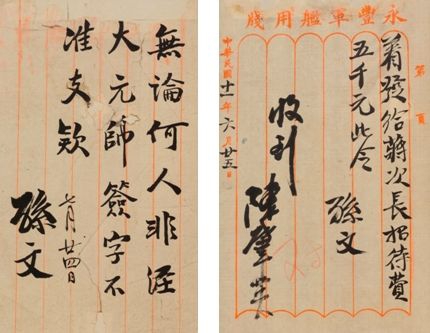 無論何人非經
大元帥簽字不
准支欵
七月廿四日
孫文
永豐軍艦用牋
第 頁
着發給蔣次長招待費
五千元此令
孫文
收到
陳肇英
中華民國十一年六月廿五日